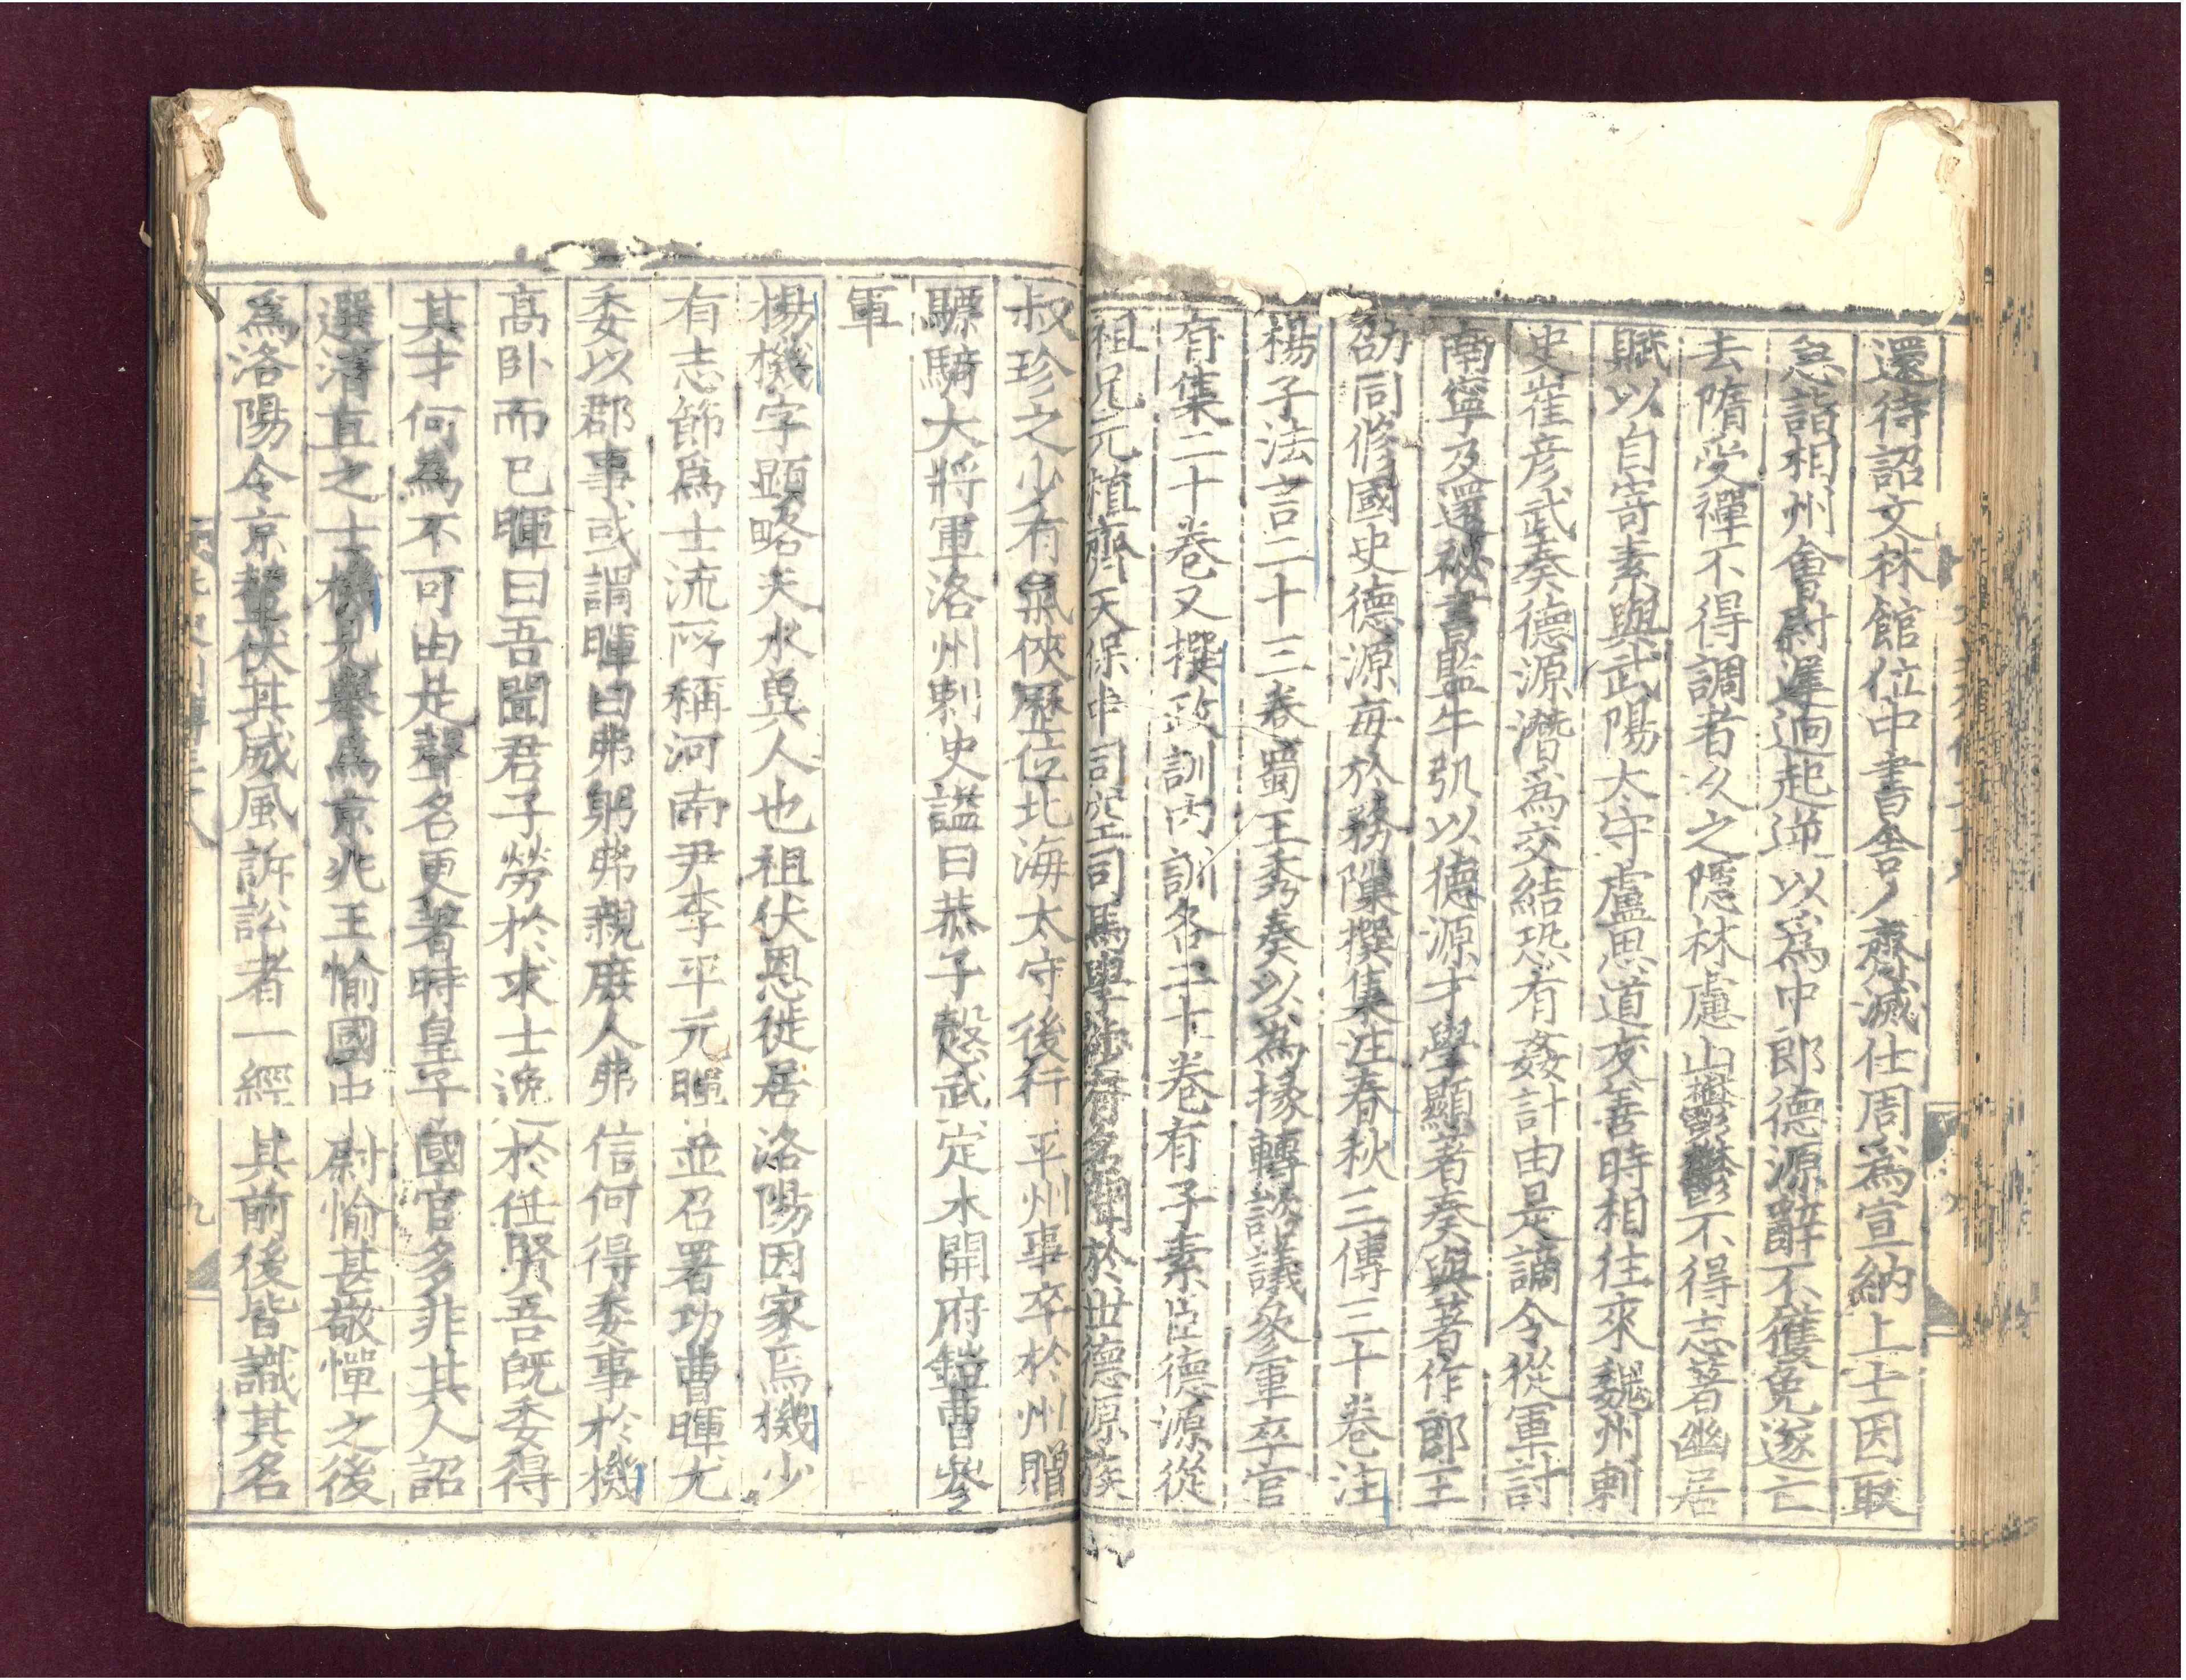 還待詔文林館位中書舍人齊滅仕周爲宣納上士因取
急詣相州會尉遲逈起逆以爲中郎德源辭不獲免遂亡
去隋受禪不得調者久之隱林慮山欝欝不得志著幽居
賦以自寄素與武陽太守盧思道友善時相往來魏州刺
史崔彦武奏德源潛爲交結恐有姦計由是謫令從軍討
南寧及還祕書監牛弘以德源才學顯著奏與著作郎王
劭同修國史德源每於務隟撰集注春秋三傳三十卷注
楊子法言二十三卷蜀王秀奏以爲掾轉諮議參軍卒官
有集二十卷又撰政訓内訓各二十卷有子素臣德源從
祖兄元植齊天保中司空司馬學涉有名聞於世德源族
叔珍之少有氣俠歷位北海太守後行平州事卒於州贈
驃騎大將軍洛州刺史謚曰恭子慤武定末開府鎧曹參
軍
楊機字顯略天水兾人也祖伏恩徙居洛陽因家焉機少
有志節爲士流所稱河南尹李平元暉並召署功曹暉尤
委以郡事或謂暉曰弗躬弗親庶人弗信何得委事於機
高卧而已暉曰吾聞君子勞於求士逸於任賢吾旣委得
其才何爲不可由是聲名更著時皇子國官多非其人詔
選清直之士機見舉爲京兆王愉國中尉愉甚敬憚之後
爲洛陽令京輦伏其威風訴訟者一經其前後皆識其名
北史列傳三十八
九